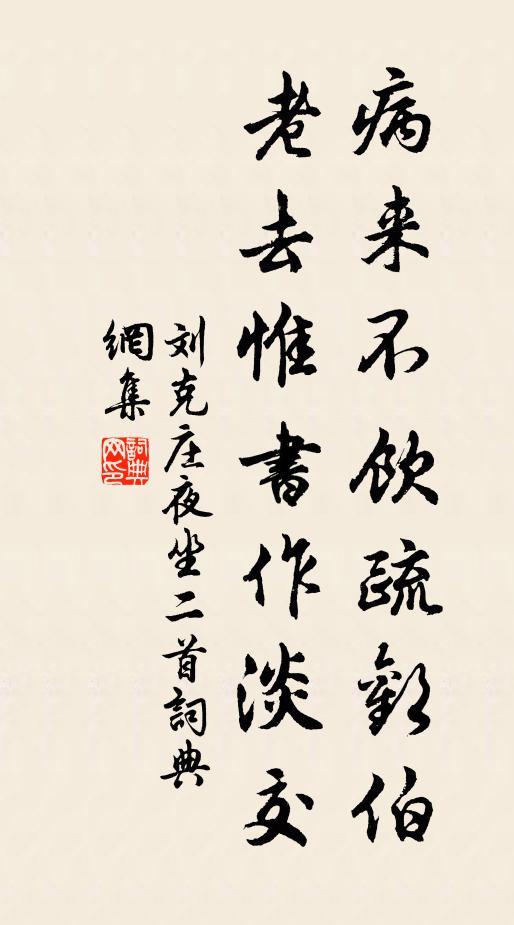 病来不飲疏歡伯
老去惟書作淡交
刘克庄夜坐二首詞典
網集
詞典网印